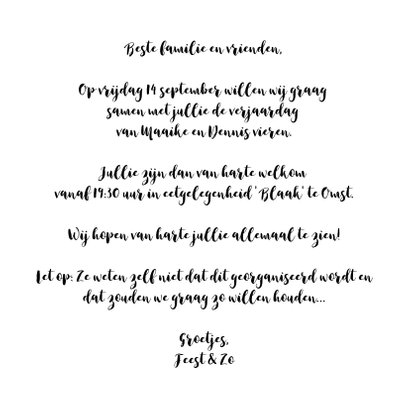 Beste familie en vrienden,
Op vrijdag 14 september willen wij graag
samen met jullie de verjaardag
van Maaike en Dennis vieren.
Jullie zijn dan van harte welkom
vanaf 19:30 uur in eetgelegenheid 'Blaak' te Omst.
Wij hopen van harte jullie allemaal te zien!
Let op: Ze weten zelf niet dat dit georganiseerd wordt en
dat zouden we graag zo willen houden...
Groetjes,
Feest & Zo